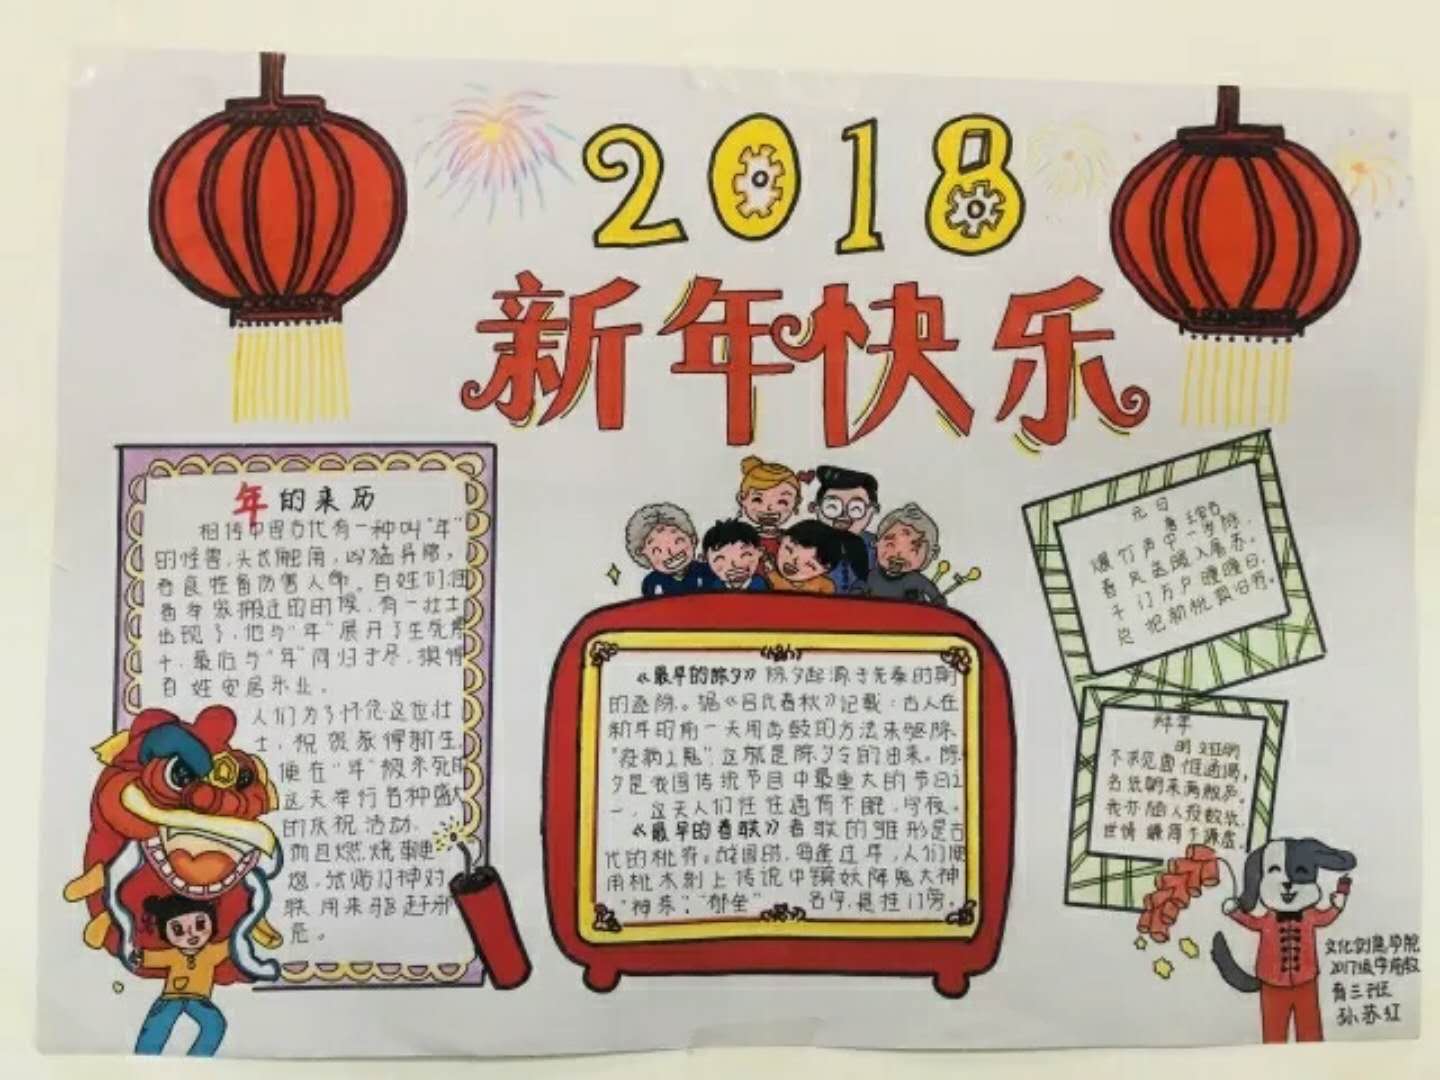 2018
新年快乐
年的来历
相传中国古代有一种叫“年”
的怪兽,头长触角,凶猛异常,
吞食牲畜伤害人命。百姓们
的时候,有一壮士
出现了,他与“年”展开了生死
,最后与“年”同归于尽,换得
百姓安居乐业。
人们为了怀念这位壮
士,祝贺获得新生,
便在“年”被杀死的
这天举行各种盛大
的庆祝活动,
而且燃烧鞭
炮,张贴门神对
联用来驱赶邪
恶。
《最早的除夕》除夕起源于先秦时期
的逐除。据《吕氏春秋》记载:古人在
新年的前一天用击鼓的方法来驱除
“疫病之鬼”,这就是除夕令的由来。除
夕是我国传统节目中最重大的节日之
一,这天人们往往通宵不眠,守夜。
《最早的春联》春联的雏形是古
代的桃符。战国时,每逢过年,人们便
用桃木刻上传说中镇妖降鬼大神
“神荼”,“郁垒” 名字,悬挂门旁。
元日
爆竹声中一岁除,
春风送暖入屠苏。
千门万户曈曈日,
总把新桃换旧符。
拜年
明 文征明
不求见面惟通谒,
名纸朝来满敝庐。
我亦随人投数纸,
世情嫌简不嫌虚。
文化创意学院
2017级学前教
育三班
孙苏红